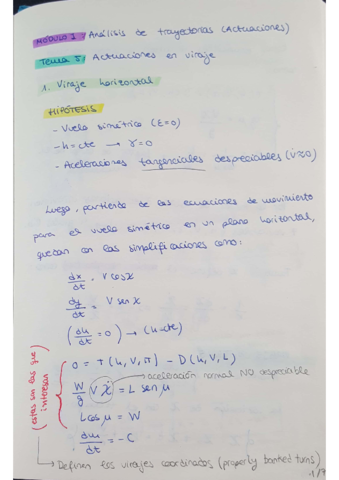 MÓDULO 2 Análisis de trayectorias (Actuaciones)
Tema 5 Actuaciones en viraje
1. Viraje horizontal
HIPÓTESIS
- Vuelo simétrico (ξ=0)
- h=cte → γ=0
- Aceleraciones tangenciales despreciables (V̇≈0)
Luego, partiendo de las ecuaciones de movimiento
para el vuelo simétrico en un plano horizontal,
quedan con las simplificaciones como:
dx/dt = V cosχ
dy/dt = V senχ
(dh/dt = 0) → (h=cte)
0 = T(h,V,π) - D(h,V,L)
aceleración normal NO despreciable
W/g V χ̇ = L sen μ
L cos μ = W
dm/dt = -C
(estas son las que interesan)
→ Definen los virajes coordinados (properly banked turns)